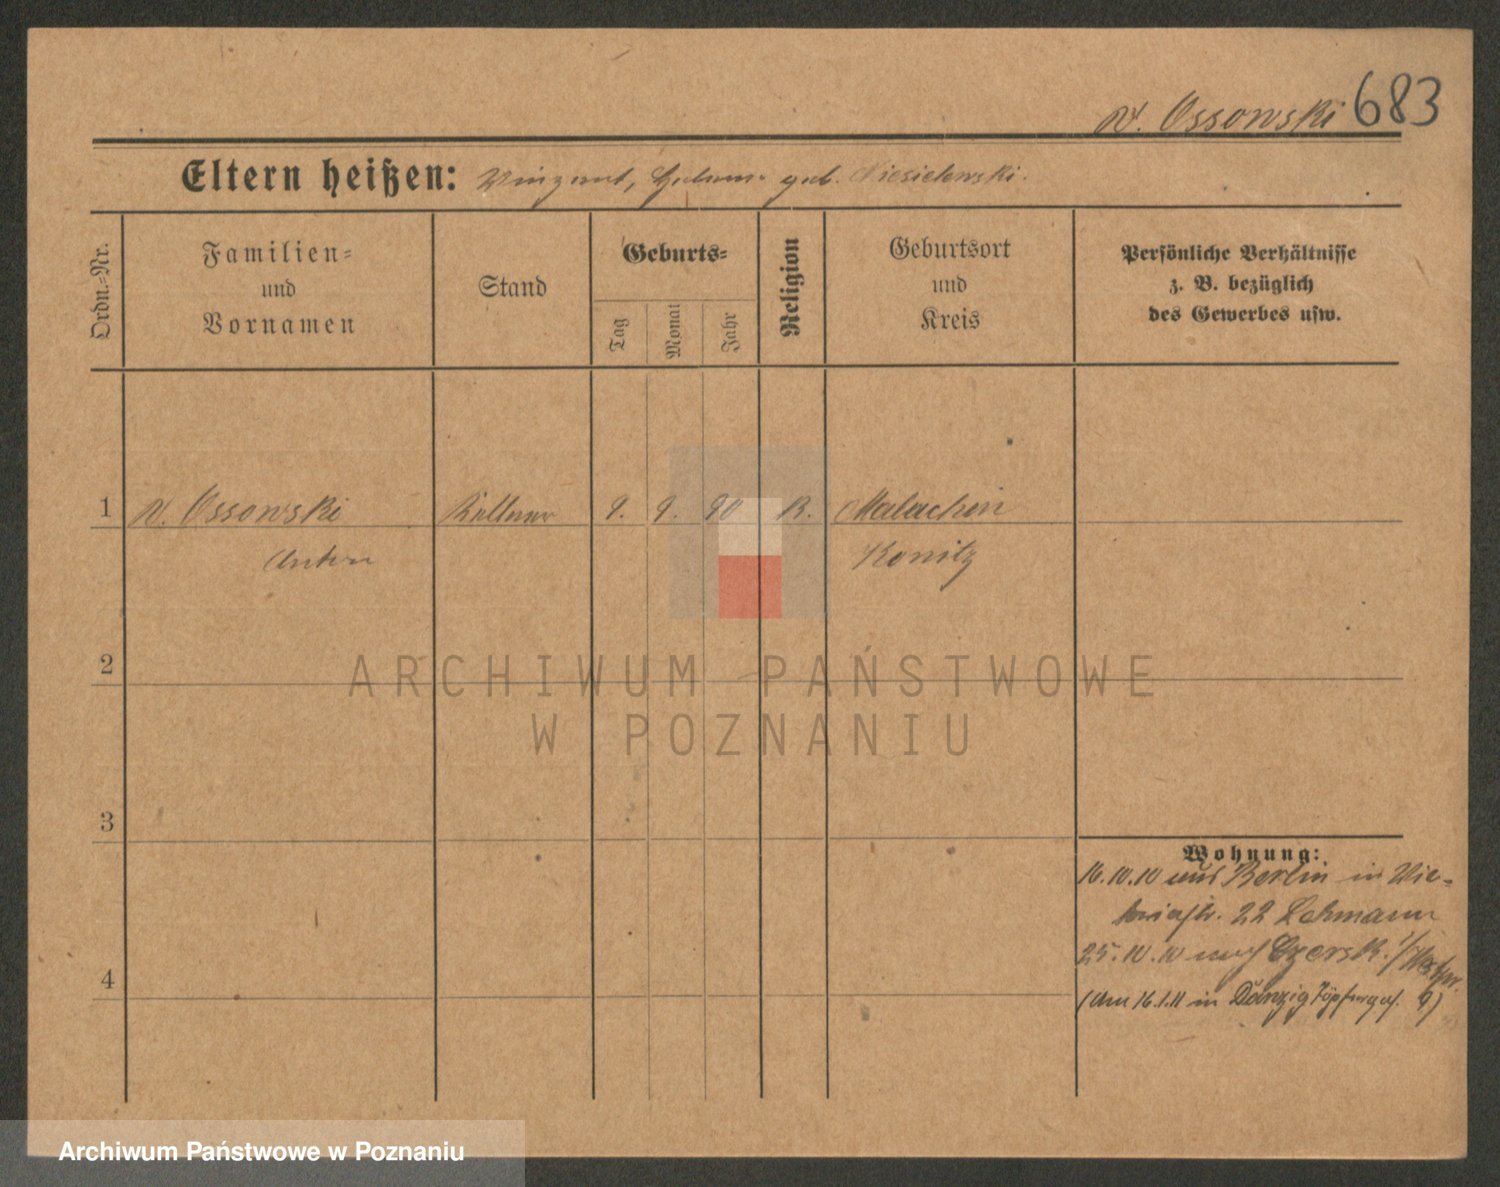 v. Ossowski 683
Eltern heißen: Vinzent, geb.
Ordn.-Nr.
Familien-
und
Vornamen
Stand
Geburts-
Tag
Monat
Jahr
Religion
Geburtsort
und
Kreis
Persönliche Verhältnisse
z. B. bezüglich
des Gewerbes usw.
1 v. Ossowski Kellner 9. 9. 90 R. Malachin
Anton Konitz
2
ARCHIWUM PAŃSTWOWE
W POZNANIU
3
Wohnung:
16.10.10 aus Berlin in Vic-
toriastr. 22 Lehmann
25.10.10 nach Czersk i/Westpr.
4
(Am 16.1.11 in Danzig Töpfergas. 9)
Archiwum Państwowe w Poznaniu